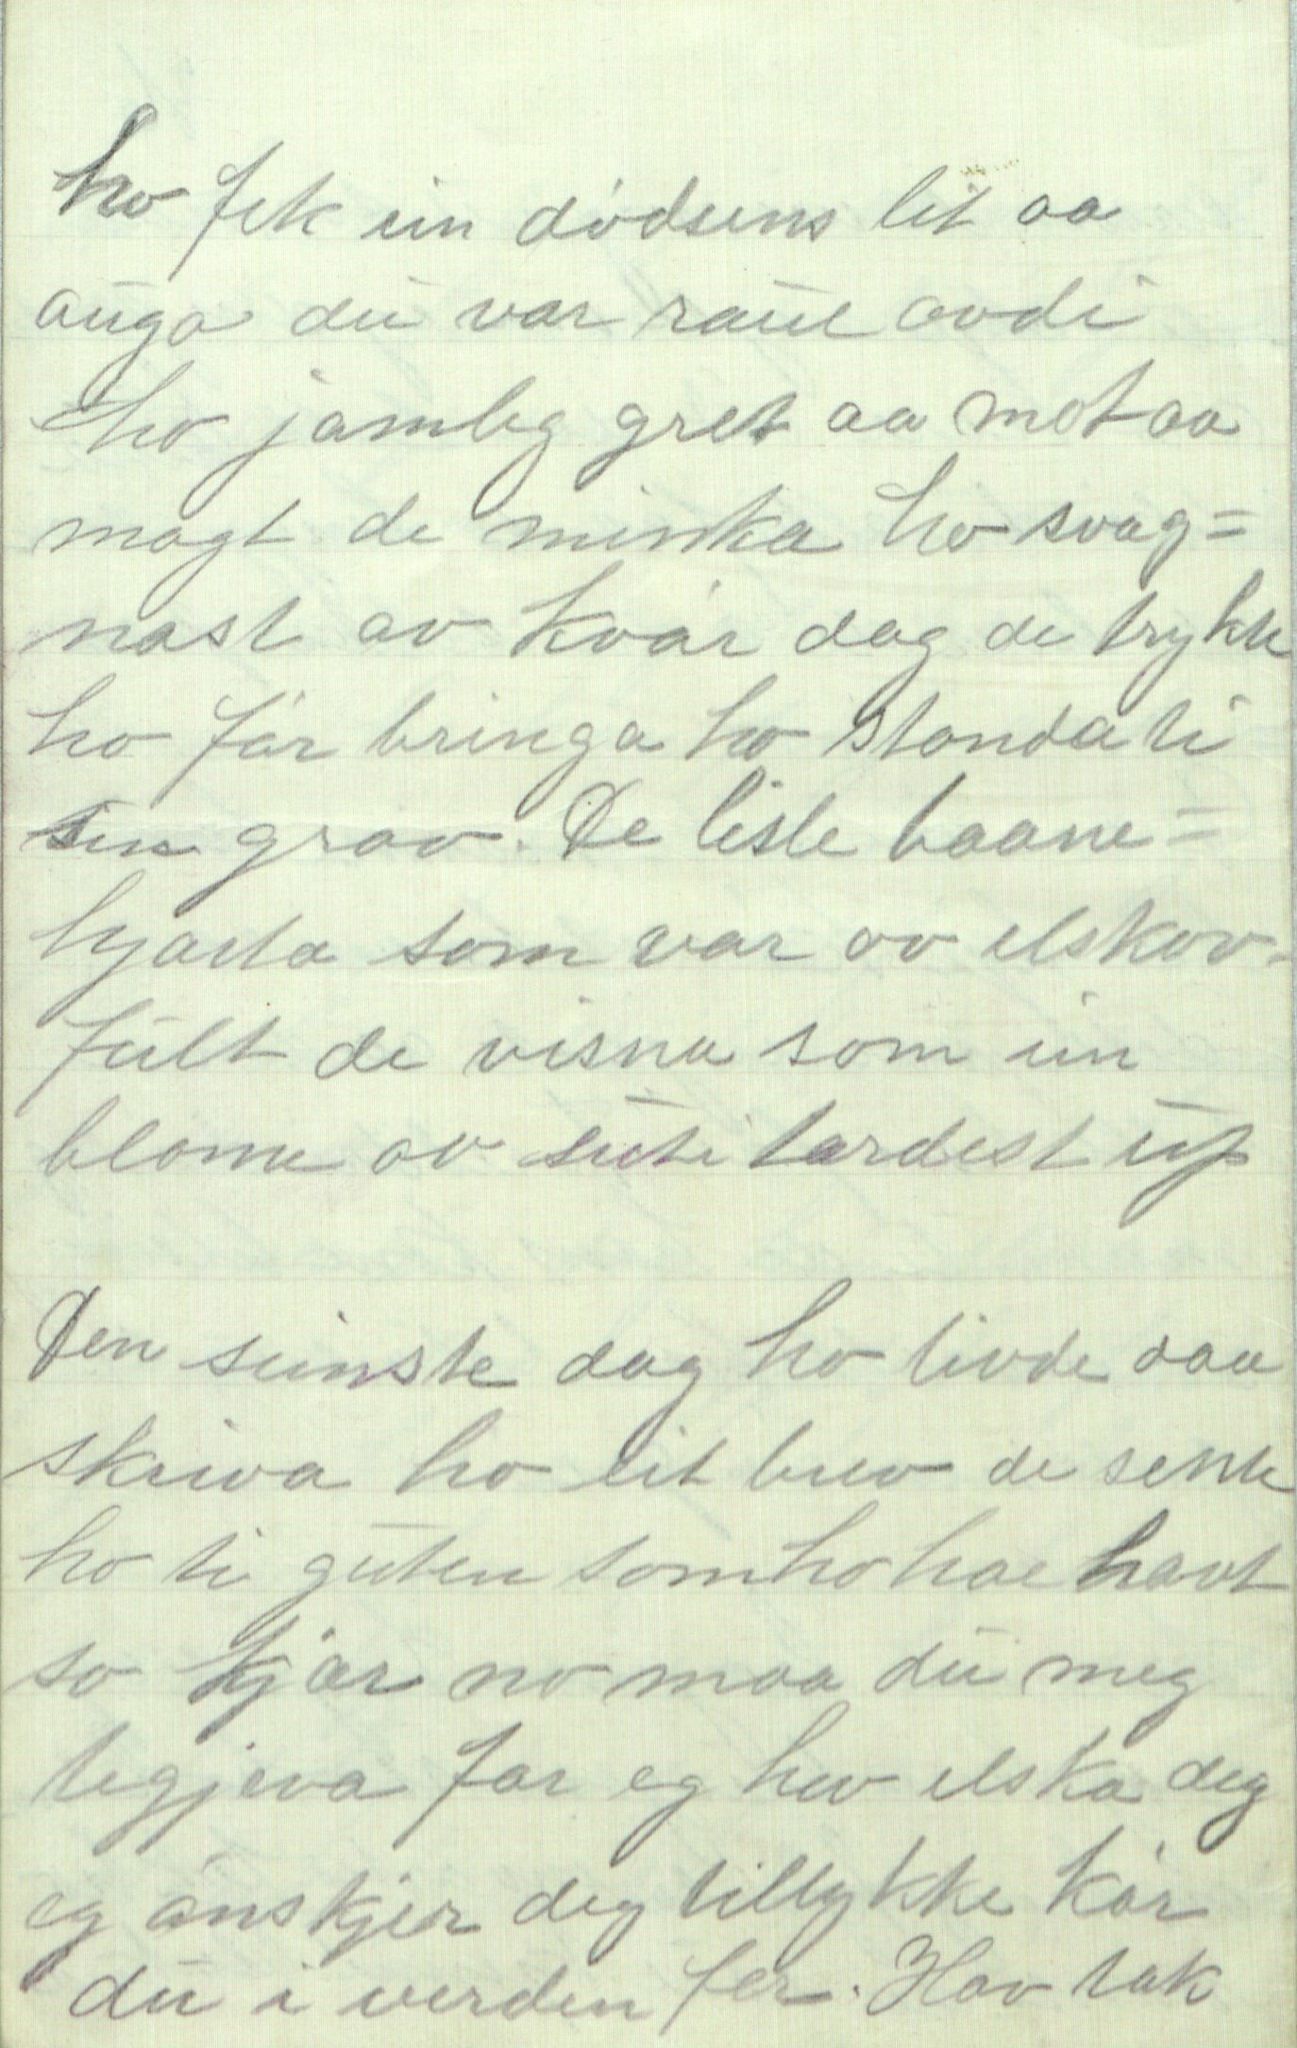 ho fek ein dødsens lit aa
augo dei var raue avdi
ho jamleg gret aa mot aa
magt de minka ho svag=
nast av kvår dag de trykte
ho før bringa ho stonda ti
sin grav. De lisle baane=
hjarta som var av elskov
fult de visna som ein
blome av sut itærdest up
Den seinste dag ho livde daa
skreiva ho eit brev de sente
ho ti guten som ho hae havt
so kjær no maa du meg
tegjeva før eg hev elska deg
eg ønskjer deg tillykke kår
du i verden fer. Hav tak